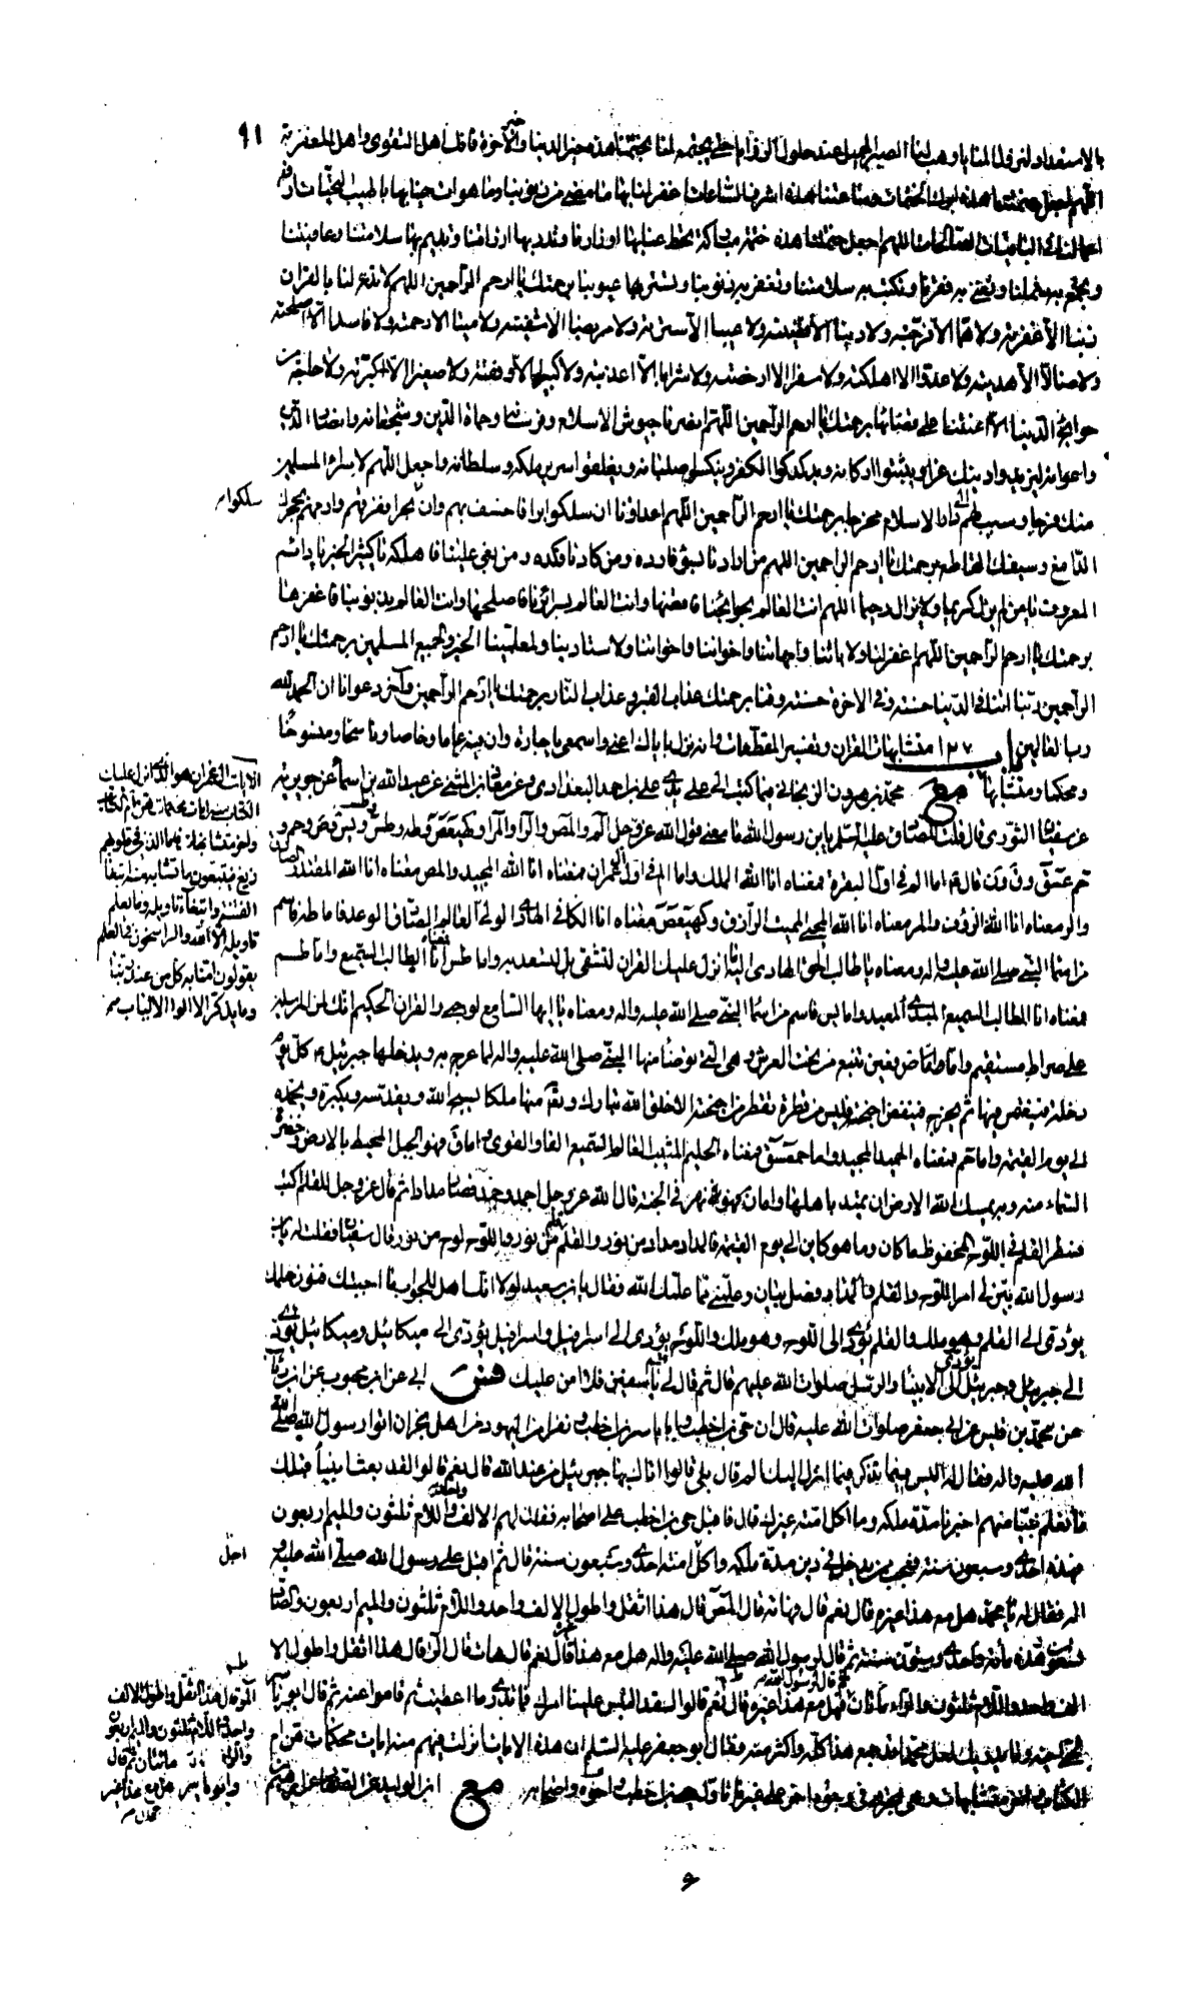 ٩١
بالاستعداد لنزول المنايا وهب لنا الصبر الجميل عند حلول الرزايا حتى يجتمع لنا بختمتنا هذه خير الدنيا والآخرة فانك اهل التقوى واهل المغفرة
اللهم اجعل ختمتنا هذه ابرك الختمات وساعتنا هذه اشرف الساعات اغفر لنا بها ما مضى من ذنوبنا وما هو ات حينا بها باطيب التحيات ارفع
اعمالنا في الباقيات الصالحات اللهم اجعل ختمتنا هذه ختمة مباركة تحط عنا بها اوزارنا وتدر بها ارزاقنا وتديم بها سلامتنا وعافيتنا
وتجمع به شملنا وتغنى به فقرنا وتكتب به سلامتنا وتغفر به ذنوبنا وتستر بها عيوبنا برحمتك يا ارحم الراحمين اللهم لا تدع لنا بالقران
ذنبا الا غفرته ولا هما الا فرجته ولا دينا الا قضيته ولا عيبا الا سترته ولا مريضا الا شفيته ولا ميتا الا رحمته ولا فاسدا الا اصلحته
ولا ضالا الا هديته ولا عدوا الا اهلكته ولا سفرا الا ارخصته ولا شرابا الا اعذبته ولا كبيرا الا وفقته ولا صغيرا الا اكبرته ولا حاجة من
حوائج الدنيا الا اعنتنا على قضائها برحمتك يا ارحم الراحمين اللهم انصرنا جيوش الاسلام وفرسانها وحماة الدين وشجعانه وانصار الدين
واعوانه ليزيدوا دينك عزا ويثبتوا اركانه ويدكدكوا الكفر وينكسوا صلبانه ويقلعوا سرير ملكه وسلطانه واجعل اللهم لاسراء المسلمين
منك فرجا وسبب لهم الى دار الاسلام مخرجا برحمتك يا ارحم الراحمين اللهم اعداؤنا ان سلكوا برا فاخسف بهم وان بحرا فغرقهم وارمهم بحجرك
سلكوا
الدامغ وسيفك القاطع برحمتك يا ارحم الراحمين اللهم من ارادنا بسوء فارده ومن كادنا فكده ومن بغى علينا فاهلكه يا كثير الخير يا دائم
المعروف يا من لم يزل كريما ولا يزال رحيما اللهم انت العالم بحوائجنا فاقضها وانت العالم بسرائرنا فاصلحها وانت العالم بذنوبنا فاغفرها
برحمتك يا ارحم الراحمين اللهم اغفر لنا ولابائنا وامهاتنا واخواننا واخواتنا ولاستادينا ولمعلمينا الخير ولجميع المسلمين برحمتك يا ارحم
الراحمين ربنا اتنا في الدنيا حسنة وفي الاخرة حسنة وقنا برحمتك عذاب القبر وعذاب النار برحمتك يا ارحم الراحمين وآخر دعوانا ان الحمد لله
رب العالمين باب ١٢٧ متشابهات القران وتفسير المقطعات وانه نزل باياك اعنى واسمعى يا جارة وان فيه عاما وخاصا وناسخا ومنسوخا
ومحكما ومتشابها مع محمد بن هرون الزنجاني فيما كتب الى على يدي على بن احمد البغدادي عن معاذ بن المثنى عن عبد الله بن اسماء عن جويرية
الايات ال عمران هو الذى انزل عليك
الكتاب منه ايات محكمات هن ام الكتاب
واخر متشابهات فاما الذين في قلوبهم
زيغ فيتبعون ما تشابه منه ابتغاء
الفتنة وابتغاء تاويله وما يعلم
تاويله الا الله والراسخون في العلم
يقولون امنا به كل من عند ربنا
وما يذكر الا اولوا الالباب
عن سفيان الثورى قال قلت للصادق عليه السلم يابن رسول الله ما معنى قول الله عز وجل الم والمص والر والمر وكهيعص وطه وطس وطسم ويس وص وحم و
حم عسق وق ون قال ع اما الم في اول البقرة فمعناه انا الله الملك واما الم في اول ال عمران فمعناه انا الله المجيد والمص معناه انا الله المقتدر الصادق
والر معناه انا الله الرؤف والمر معناه انا الله المحيي المميت الرازق وكهيعص معناه انا الكافي الهادى الولى العالم الصادق الوعد فاما طه فاسم
من اسماء النبي صلى الله عليه واله ومعناه يا طالب الحق الهادى اليه ما انزل عليك القران لتشقى بل لتسعد به واما طس فمعناه انا الطالب السميع واما طسم
فمعناه انا الطالب السميع المبدئ المعيد واما يس فاسم من اسماء النبي صلى الله عليه واله ومعناه يا ايها السامع لوحيى والقران الحكيم انك لمن المرسلين
على صراط مستقيم واما ص فعين تنبع من تحت العرش وهي التي توضأ منها النبي صلى الله عليه واله لما عرج به ويدخلها جبرئيل ع كل يوم
دخلة فينغمس فيها ثم يخرج منها فينفض اجنحته فليس من قطرة تقطر من اجنحته الا خلق الله تبارك وتعالى منها ملكا يسبح الله ويقدسه ويكبره ويحمده
الى يوم القيمة واما حم فمعناه الحميد المجيد واما حمعسق فمعناه الحليم المثيب العالم السميع القادر القوى واما ق فهو الجبل المحيط بالارض وخضرة
السماء منه وبه يمسك الله الارض ان تميد باهلها واما ن فهو نهر في الجنة قال الله عز وجل اجمد فجمد فصار مدادا ثم قال عز وجل للقلم اكتب
فسطر القلم في اللوح المحفوظ ما كان وما هو كاين الى يوم القيمة فالمداد مداد من نور والقلم قلم من نور واللوح لوح من نور قال سفيان فقلت له يابن
رسول الله بين لى امر اللوح والقلم والمداد فضل بيان وعلمنى مما علمك الله فقال يابن سعيد لولا انك اهل للجواب ما اجبتك فنون ملك
يؤدى الى القلم وهو ملك والقلم يؤدى الى اللوح وهو ملك واللوح يؤدى الى اسرافيل واسرافيل يؤدى الى ميكائيل وميكائيل يؤدى
الى جبرئيل وجبرئيل يؤدى الى الانبياء والرسل صلوات الله عليهم قال ثم قال لى قم يا سفين فلا امن عليك فس ابى عن ابن محبوب عن ابن رئاب
عن محمد بن قيس عن ابى جعفر صلوات الله عليه قال ان حى بن اخطب وابا ياسر بن اخطب ونفرا من اليهود من اهل نجران اتوا رسول الله صلى
الله عليه واله فقالوا له اليس فيما تذكر فيما انزل اليك الم قال بلى قالوا اتاك بها جبرئيل من عند الله قال نعم قالوا لقد بعث انبياء قبلك
ما نعلم نبيا منهم اخبر ما مدة ملكه وما اكل امته غيرك قال فاقبل حى بن اخطب على اصحابه فقال لهم الالف واحد واللام ثلثون والميم اربعون
فهذه احدى وسبعون سنة فعجب ممن يدخل في دين مدة ملكه واكل امته احدى وسبعون سنة قال ثم اقبل على رسول الله صلى الله عليه و
اجل
اله فقال له يا محمد هل مع هذا غيره قال نعم قال فهاته قال المص قال هذا اثقل واطول الالف واحد واللام ثلثون والميم اربعون والصاد
تسعون فهذه مائة واحدى وستون سنة ثم قال لرسول الله صلى الله عليه واله هل مع هذا غيره قال نعم قال هات قال الر قال هذا اثقل واطول الا
الف واحد واللام ثلثون والراء مائتان فهل مع هذا غيره قال نعم قالوا لقد التبس علينا امرك فما ندرى ما اعطيت ثم قاموا عنه ثم قال ابو ياسر
المر قال هذا اثقل واطول الالف
واحد واللام ثلثون والميم اربعون
والراء مائتان ثم قال
هل مع هذا غير
لحى اخيه وما يدريك لعل محمدا قد جمع هذا كله واكثر منه فقال ابو جعفر عليه السلم ان هذه الايات انزلت فيهم منه ايات محكمات هن ام
الكتاب واخر متشابهات وهي تجرى في وجوه اخر على غير ما تاول به حى بن اخطب واخوه واصحابه مع ابن الوليد عن الصفار عن ابرهيم